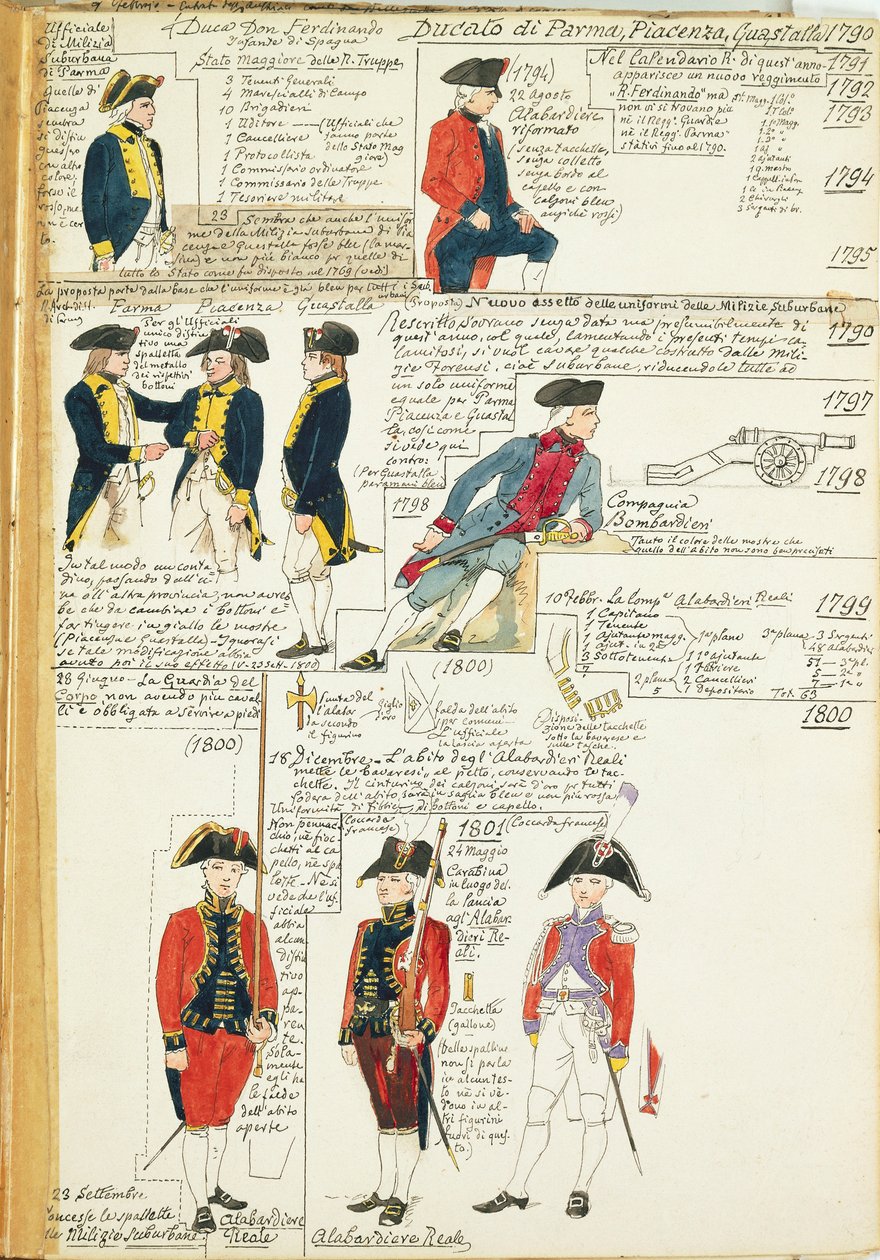 Duca Don Ferdinando
Infante di Spagna
Ducato di Parma, Piacenza, Guastalla 1790
Ufficiale
di Milizia
Suburbana
di Parma
Quelle di
Piacenza
sembra
si distin
guesso
con altro
colore.
forse il
rosso, ma
non è cer
to.
Stato Maggiore delle R. Truppe
3 Tenenti Generali
4 Marescialli di Campo
10 Brigadieri
1 Uditore (Ufficiali che
1 Cancelliere fanno parte
1 Protocollista dello Stato Mag
giore)
1 Commissario ordinatore
1 Commissario delle Truppe
1 Tesoriere militare
23 Sembra che anche l'unifor
me della Milizia suburbana di Pia
cenza e Guastalla fosse bleu
e non più bianco per quelle di
tutto lo Stato come fu disposto nel 1769 (vedi)
(1794)
22 agosto
Alabardiere
riformato
(senza tacchette,
senza colletto
senza bordo al
capello e con
calzoni bleu
anziché rossi)
Nel Calendario R. di quest'anno
apparisce un nuovo reggimento
"R. Ferdinando" ma
non vi si trovano più
nè il Regg. Guardie
nè il Regg. Parma
stativi fino al 1790.
2 ajutanti
2 Chirurghi
1791
1792
1793
1794
1795
La proposta parte dalla base che l'uniforme è già bleu per tutti i Sub
urbani
Parma Piacenza Guastalla
Per gl'Ufficiali
unico distin
tivo una
spalletta
del metallo
dei rispettivi
bottoni
(Proposta) Nuovo assetto delle uniformi delle Milizie Suburbane
Rescritto Sovrano senza data ma presumibilmente di
quest'anno, col quale, lamentando i presenti tempi ca
lamitosi, si vuol cavare qualche costrutto dalle Mili
zie Forensi, cioè Suburbane, riducendole tutte ad
un solo uniforme
eguale per Parma
Piacenza e Guastal
la, così come
si vede qui
contro:
(Per Guastalla
paramani bleu
1790
1797
1798
1798
Compagnia
Bombardieri
Tanto il colore delle mostre che
quello dell'abito non sono ben precisati
In tal modo un conta
dino, passando dall'u
na all'altra provincia, non avreb
be che da cambiare i bottoni e
far tingere in giallo le mostre
(Piacenza e Guastalla) - Ignorasi
se tale modificazione abbia
avuto poi il suo effetto (V. 23 Sett. 1800)
28 Giugno - La Guardia del
Corpo non avendo più caval
li è obbligata a servire a piedi
10 Febbr. La Comp.a Alabardieri Reali
1 Capitano
1 Tenente
1 Ajutante magg.
1 Ajut. in 2°
3 Sottotenente
7
1a plana
2 plana
5
1 1° ajutante
1 Foriere
2 Cancellieri
1 depositario
3a plana
3 Sergenti
48 Alabardieri
51 - 3a pl.
5 - 2a "
7 - 1a "
Tot. 63
1799
1800
(1800)
punta del
l'alabar
da secondo
il figurino
Giglio
d'oro
falda dell'abito
per comuni -
L'ufficiale
la lascia aperta
Disposi
zione delle tacchette
sotto la bavarese e
sulle tasche.
(1800)
18 Dicembre - L'abito degl'Alabardieri Reali
mette le bavaresi al petto, conservando le tac
chette. Il cinturino dei calzoni sarà d'oro per tutti
fodera dell'abito sarà in saglia bleu e non più rossa
Uniformità di fibbie, di bottoni e capello.
Non pennac
chio, nè fioc
chetti al ca
pello, nè spal
lette - Nè si
vede che l'uf
ficiale
abbia
alcun
distin
tivo
ap
pa
ren
te.
Sola
mente
egli ha
le falde
dell'abito
aperte
(Coccarda
francese)
1801
(Coccarda francese)
24 Maggio
Carabina
in luogo del
la lancia
agl'Alabar
dieri Re
ali.
Tacchetta
(gallone)
(Delle spalline
non si parla
in alcun tes
to nè si ve
dono in al
tri figurini
fuori di ques
to.)
23 Settembre
concesse le spallette
alle Milizie Suburbane
Alabardiere
Reale
Alabardiere Reale